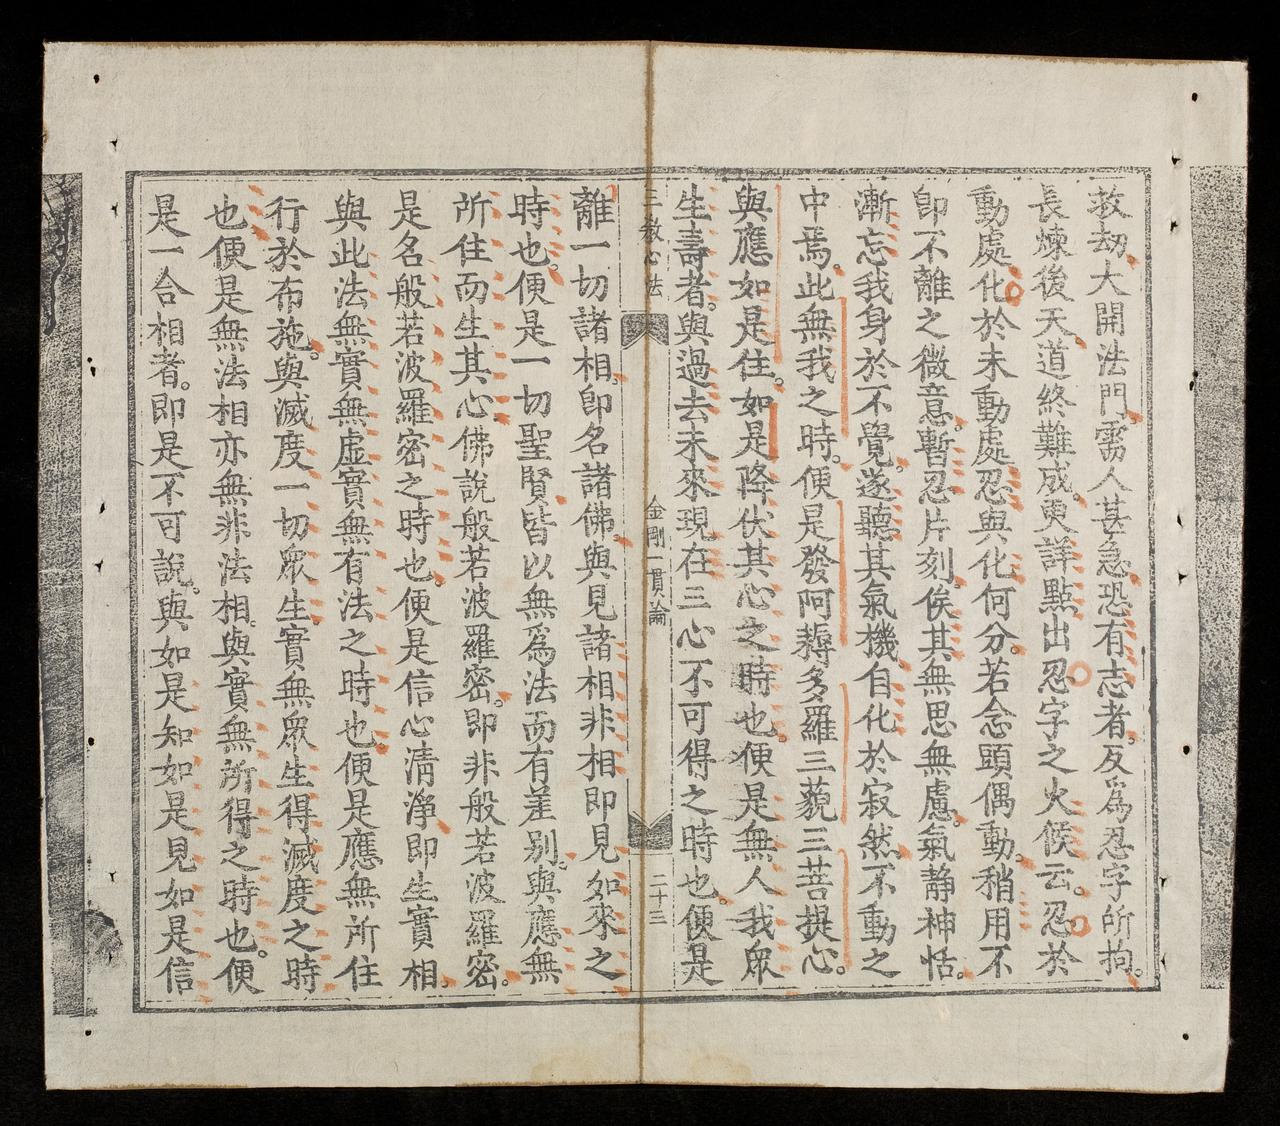 救劫大開法門需人甚急恐有志者反為忍字所拘。
長煉後天道終難成更詳點出忍字之火候云。忍於
動處化於未動處忍與化何分。若念頭偶動。稍用不
卽不離之微意。暫忍片刻俟其無思無慮。氣靜神恬。
漸忘我身於不覺。遂聽其氣機自化於寂然不動之
中焉。此無我之時。便是發阿耨多羅三藐三菩提心。
與應如是住。如是降伏其心之時也。便是無人我眾
生壽者。與過去未來現在三心不可得之時也。便是
三教心法
金剛一貫論
二十三
離一切諸相。卽名諸佛。與見諸相非相即見如來之
時也。便是一切聖賢皆以無為法而有差别。與應無
所住而生其心。佛說般若波羅密。即非般若波羅密。
是名般若波羅密之時也。便是信心清淨即生實相。
與此法無實無虛實無有法之時也。便是應無所住
行於布施。與滅度一切眾生。實無眾生得滅度之時
也。便是無法相亦無非法相。與實無所得之時也。便
是一合相者。即是不可說。與如是知如是見如是信